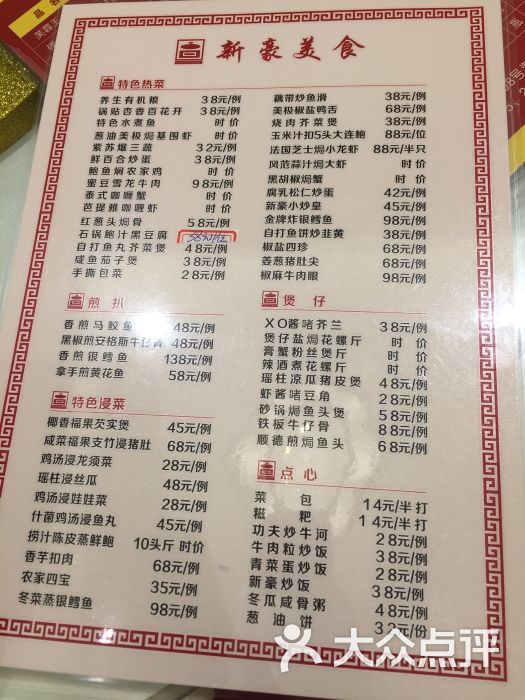 新豪美食
特色热菜
养生有机粮 38元/例
锅贴杏香百花开 38元/例
特色水煮鱼 时价
葱油美极焗基围虾 时价
紫苏爆三蔬 32元/例
鲜百合炒蛋 38元/例
鲍鱼焖农家鸡 时价
蜜豆雪龙牛肉 98元/例
泰式咖喱蟹 时价
芭提雅咖喱虾 时价
红葱头焗骨 58元/例
石锅鲍汁黑豆腐
自打鱼丸芥菜煲 48元/例
咸鱼茄子煲 38元/例
手撕包菜 28元/例
藕带炒鱼滑 38元/例
美极椒盐鸭舌 68元/例
烧肉芥菜煲 38元/例
玉米汁扣5头大连鲍 88元/位
法国芝士焗小龙虾 88元/半只
风范蒜汁焗大虾 时价
黑胡椒焗蟹 时价
腐乳松仁炒蛋 42元/例
新豪小炒皇 45元/例
金牌炸银鳕鱼 98元/例
自打鱼饼炒韭黄 38元/例
椒盐四珍 68元/例
姜葱猪肚尖 68元/例
椒麻牛肉眼 98元/例
煎扒
香煎马鲛鱼 48元/例
黑椒煎安格斯牛仔骨 48元/例
香煎银鳕鱼 138元/例
拿手煎黄花鱼 58元/例
特色浸菜
椰香福果芡实煲 45元/例
咸菜福果支竹浸猪肚 68元/例
鸡汤浸龙须菜 28元/例
瑶柱浸丝瓜 48元/例
鸡汤浸娃娃菜 28元/例
什菌鸡汤浸鱼丸 45元/例
捞汁陈皮蒸鲜鲍 10头斤 时价
香芋扣肉 68元/例
农家四宝 35元/例
冬菜蒸银鳕鱼 98元/例
煲仔
XO酱啫芥兰 38元/例
煲仔盐焗花螺斤 时价
膏蟹粉丝煲斤 时价
辣酒煮花螺斤 时价
瑶柱凉瓜猪皮煲 48元/例
虾酱啫豆角 28元/例
砂锅焗鱼头煲 58元/例
铁板牛仔骨 88元/例
顺德煎焗鱼头 68元/例
点心
菜包 14元/半打
糍粑 14元/半打
功夫炒牛河 28元/例
牛肉粒炒饭 38元/例
青菜蛋炒饭 28元/例
新豪炒饭 38元/例
冬瓜咸骨粥 48元/例
葱油饼 32元/份
大众点评